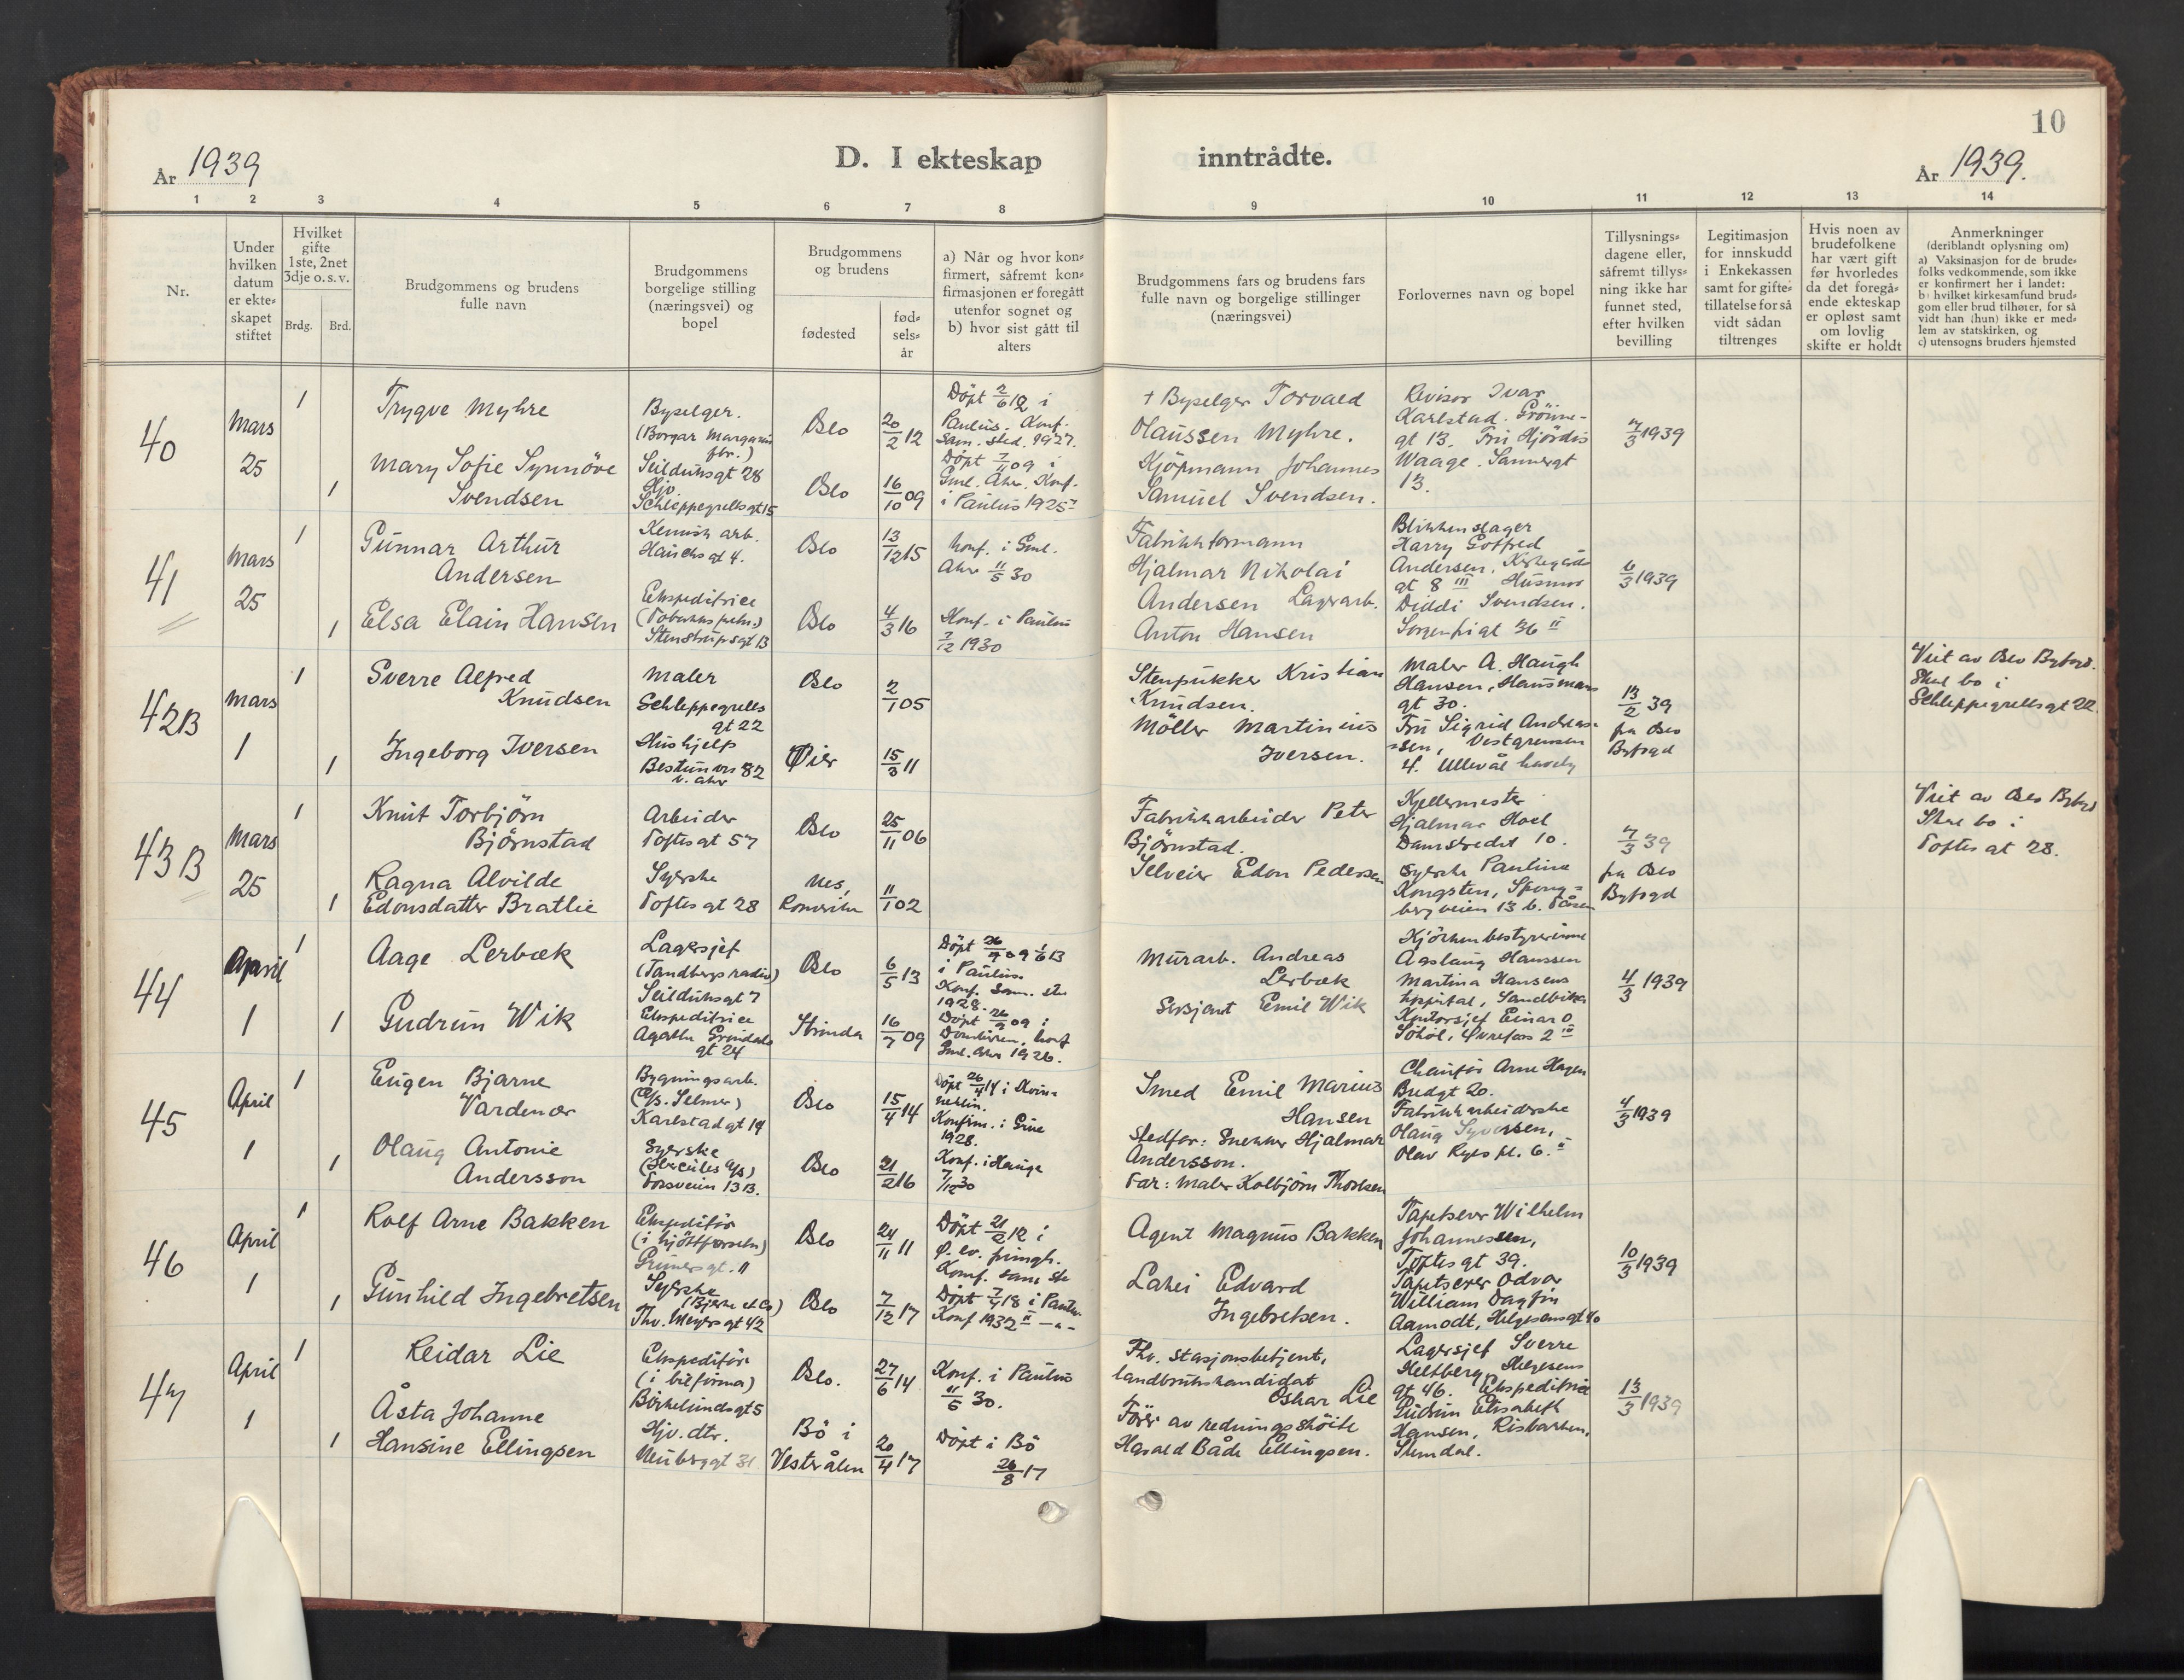 10
År 1939
D. I ekteskap inntrådte.
År 1939.
1 2 3 4 5 6 7 8 9 10 11 12 13 14
Nr.
Under hvilken datum er ekte-skapet stiftet
Hvilket gifte 1ste, 2net 3dje o. s. v.
Brdg. Brd.
Brudgommens og brudens fulle navn
Brudgommens borgelige stilling (næringsvei) og bopel
Brudgommens og brudens
fødested
fød-sels-år
a) Når og hvor kon-firmert, såfremt kon-firmasjonen er foregått utenfor sognet og b) hvor sist gått til alters
Brudgommens fars og brudens fars fulle navn og borgelige stillinger (næringsvei)
Forlovernes navn og bopel
Tillysnings-dagene eller, såfremt tillys-ning ikke har funnet sted, efter hvilken bevilling
Legitimasjon for innskudd i Enkekassen samt for gifte-tillatelse for så vidt sådan tiltrenges
Hvis noen av brudefolkene har vært gift før hvorledes da det foregå-ende ekteskap er opløst samt om lovlig skifte er holdt
Anmerkninger (deriblandt oplysning om) a) Vaksinasjon for de brude-folks vedkommende, som ikke er konfirmert her i landet: b) hvilket kirkesamfund brud-gom eller brud tilhører, for så vidt han (hun) ikke er med-lem av statskirken, og c) utensogns bruders hjemsted
40
Mars
25
1
1
Trygve Myhre
Mary Sofie Synnöve
Svendsen
Byselger.
(Borgar Margarin
fbr.)
Seilduksgt 28
Hjv.
Schleppegrellsgt 15
Oslo
Oslo
20/2 12
16/10 09
Döpt 2/6 12 i
Paulus. Konf.
sam. sted. 1927.
Döpt 7/11 09 i
Gml. Aker. Konf.
i Paulus 1925
+ Byselger Torvald
Olaussen Myhre.
Kjöpmann Johannes
Samuel Svendsen.
Revisor Ivar
Karlstad. Grönne-
gt 13. Fru Hjördis
Waage. Sannergt
13.
7/3 1939
41
Mars
25
1
1
Gunnar Arthur
Andersen
Elsa Elain Hansen
Kemisk arb.
Hauchsgt 4.
Ekspeditrice
Stenstrupsgt 13
Oslo
Oslo
13/12 15
4/3 16
Konf. i Gml.
Aker 11/5 30
Konf. i Paulus
7/12 1930
Fabrikkformann
Hjalmar Nikolai
Andersen Lagerarb.
Anton Hansen
Blikkenslager
Harry Gotfred
Andersen, Kirkegårds
gt 8 III Husmor
Diddi Svendsen.
Sorgenfrigt 36 II
6/3 1939
42B
Mars
1
1
1
Sverre Alfred
Knudsen
Ingeborg Iversen
Maler
Schleppegrells
gt 22
Hushjelp
Bestumvn 82
v. Aker
Oslo
Øier
2/1 05
15/3 11
Stenpukker Kristian
Knudsen.
Möller Martinius
Iversen.
Maler A. Haugh
Hansen, Hausmans
gt 30.
Fru Sigrid Andreas-
sen, Vestgrensen
4. Ullevål haveby
13/2 39
fra Oslo
Byfogd
Viet av Oslo Byfogd.
Skal bo i
Schleppegrellsgt 22
43B
Mars
25
1
1
Knut Torbjörn
Björnstad
Ragna Alvilde
Edonsdatter Bratlie
Arbeider
Toftesgt 57
Syerske
Toftesgt 28
Oslo
Nes,
Romerike
25/11 06
11/1 02
Fabrikkarbeider Peter
Björnstad.
Selveier Edon Pedersen
Kjellermester
Hjalmar Hoel
Damstredet 10.
Syerske Pauline
Kongsten, Spong-
bergveien 13 b. Tåsen
7/3 39
fra Oslo
Byfogd
Viet av Oslo Byfogd
Skal bo i
Toftes gt 28.
44
April
1
1
1
Aage Lerbæk
Gudrun Wik
Lagersjef
(Tandbergs radio)
Seilduksgt 7
Ekspeditrice
Agathe Gröndals
gt 24
Oslo
Strinda
6/5 13
16/7 09
Döpt 1/6 13
i Paulus.
Konf. sam. ste
1928.
Döpt 26/9 09 i
Domkirken, konf
Gml. Aker 1926.
Murarb. Andreas
Lerbæk
Sersjant Emil Wik
Kjökkenbestyrerinne
Aaslaug Hanssen
Martina Hansens
hospital, Sandvika
Kontorsjef Einar O
4/3 1939
45
April
1
1
1
Eugen Bjarne
Vardenær
Olaug Antonie
Andersson
Bygningsarb.
(A/s. Selmer)
Karlstadgt 19
Syerske
(Hercules A/s)
Torsveien 13 B.
Oslo
Oslo
15/4 14
21/2 16
Döpt 26/4 14 i Kvin-
neklin.
Konfirm. i Grue
1928.
Konf. i Hauge
7/12 30
Smed Emil Marius
Hansen
Stedfar: Snekker Hjalmar
Andersson.
Far: Maler Kolbjörn Thorksen
Chauför Arne Hagen
Bredgt 20.
Fabrikkarbeiderske
Olaug Syversen,
Olav Ryes pl. 6. II
4/3 1939
46
April
1
1
1
Rolf Arne Bakken
Gunhild Ingebretsen
Ekspeditör
(i kjöttforretn)
Grünersgt. 11
Syerske
(Bjerke et Co)
Thv. Meyersgt 42
Oslo
Oslo
24/11 11
7/12 17
Döpt 21/2 12 i
Ø. ev. frimgh.
Konf. sam. ste
Döpt 7/4 18 i Paulus.
Konf 1932 II —"—
Agent Magnus Bakken
Lakei Edvard
Ingebretsen.
Tapetserer Wilhelm
Johannessen,
Toftesgt 39.
Tapetserer Odvar
William Dagfin
Aamodt, Helgesensgt 40
10/3 1939
47
April
1
1
1
Reidar Lie
Åsta Johanne
Hansine Ellingsen
Ekspeditör
(i bilfirma)
Birkelundsgt 5
Hjv. dtr.
Neuberggt 31
Oslo.
Bö i
Vesterålen
27/6 14
20/4 17
Konf. i Paulus
11/5 30.
Döpt i Bö
26/8 17
Fhv. stasjonsbetjent,
landbrukskandidat
Oskar Lie
Förer av redningsskøite
Harald Både Ellingsen.
Lagersjef Sverre
Heltberg, Helgesens
gt 46. Ekspeditrice
Gudrun Elisabeth
Hansen, Risbakken,
Slemdal.
13/3 1939